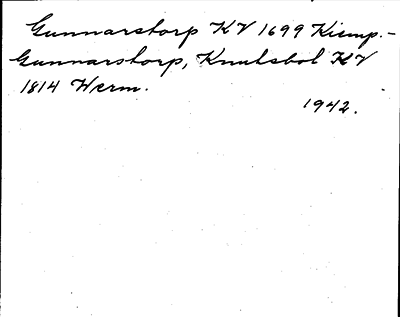 Gunnarstorp KV 1699 Kiemp.-
Gunnarstorp, Knutsbol KV
1814 Herm.
1942.